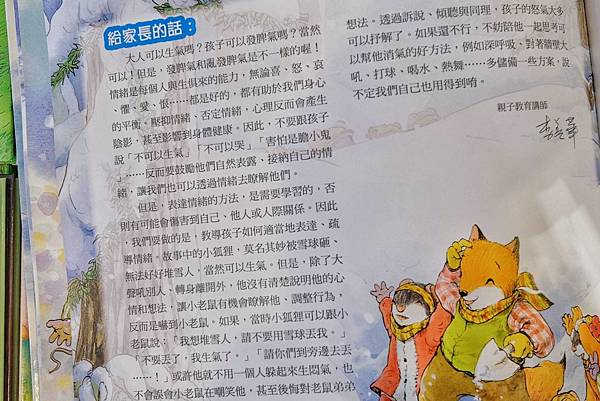 給家長的話：
大人可以生氣嗎？孩子可以發脾氣嗎？當然
可以！但是，發脾氣和亂發脾氣是不一樣的喔！
情緒是每個人與生俱來的能力，無論喜、怒、哀
、懼、愛、恨……都是好的，都有助於我們身心
的平衡。壓抑情緒、否定情緒，心理反而會產生
陰影，甚至影響到身體健康。因此，不要跟孩子
說「不可以生氣」「不可以哭」「害怕是膽小鬼
」……反而要鼓勵他們自然表露、接納自己的情
緒，讓我們也可以透過情緒去瞭解他們。
但是，表達情緒的方法，是需要學習的，否
則有可能會傷害到自己、他人或人際關係。因此
，我們要做的是，教導孩子如何適當地表達、疏
導情緒。故事中的小狐狸，莫名其妙被雪球砸、
無法好好堆雪人，當然可以生氣。但是，除了大
聲吼別人、轉身離開外，他沒有清楚說明他的心
情和想法，讓小老鼠有機會瞭解他，調整行為，
反而是嚇到小老鼠。如果，當時小狐狸可以跟小
老鼠說：「我想堆雪人，請不要用雪球丟我。」
「不要丟了，我生氣了。」「請你們到旁邊去丟
……！」或許他就不用一個人躲起來生悶氣，也
不會誤會小老鼠在嘲笑他，甚至後悔對老鼠弟弟
想法。透過訴說、傾聽與同理，孩子的怒氣大多
可以抒解了。如果還不行，不妨陪他一起思考可
以幫他消氣的好方法，例如深呼吸、對著牆壁大
吼、打球、喝水、熱舞……多儲備一些方案，說
不定我們自己也用得到唷。
親子教育講師